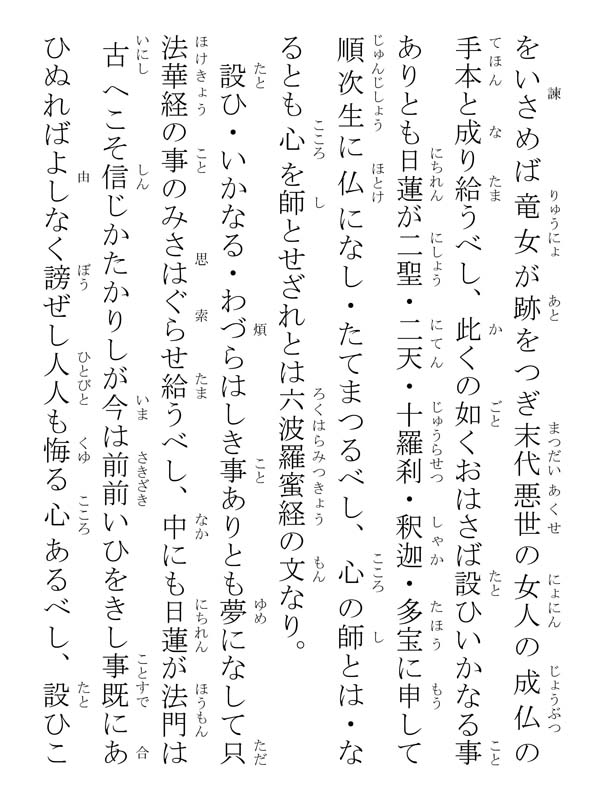 をいさめば竜女が跡をつぎ末代悪世の女人の成仏の
手本と成り給うべし、此くの如くおはさば設ひいかなる事
ありとも日蓮が二聖・二天・十羅刹・釈迦・多宝に申して
順次生に仏になし・たてまつるべし、心の師とは・な
るとも心を師とせざれとは六波羅蜜経の文なり。
設ひ・いかなる・わづらはしき事ありとも夢になして只
法華経の事のみさはぐらせ給うべし、中にも日蓮が法門は
古へこそ信じかたかりしが今は前前いひをきし事既にあ
ひぬればよしなく謗ぜし人人も悔る心あるべし、設ひこ